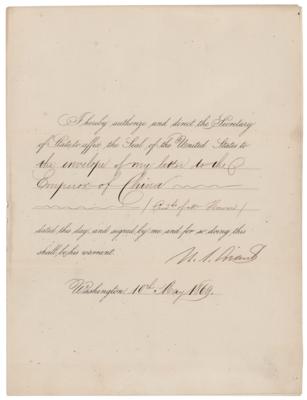 I hereby authorize and direct the Secretary
of State to affix the Seal of the United States to
the envelope of my letter to the
Emperor of China
dated this day, and signed by me, and for so doing this
shall be his warrant.
U. S. Grant
Washington, 10th May 1869.